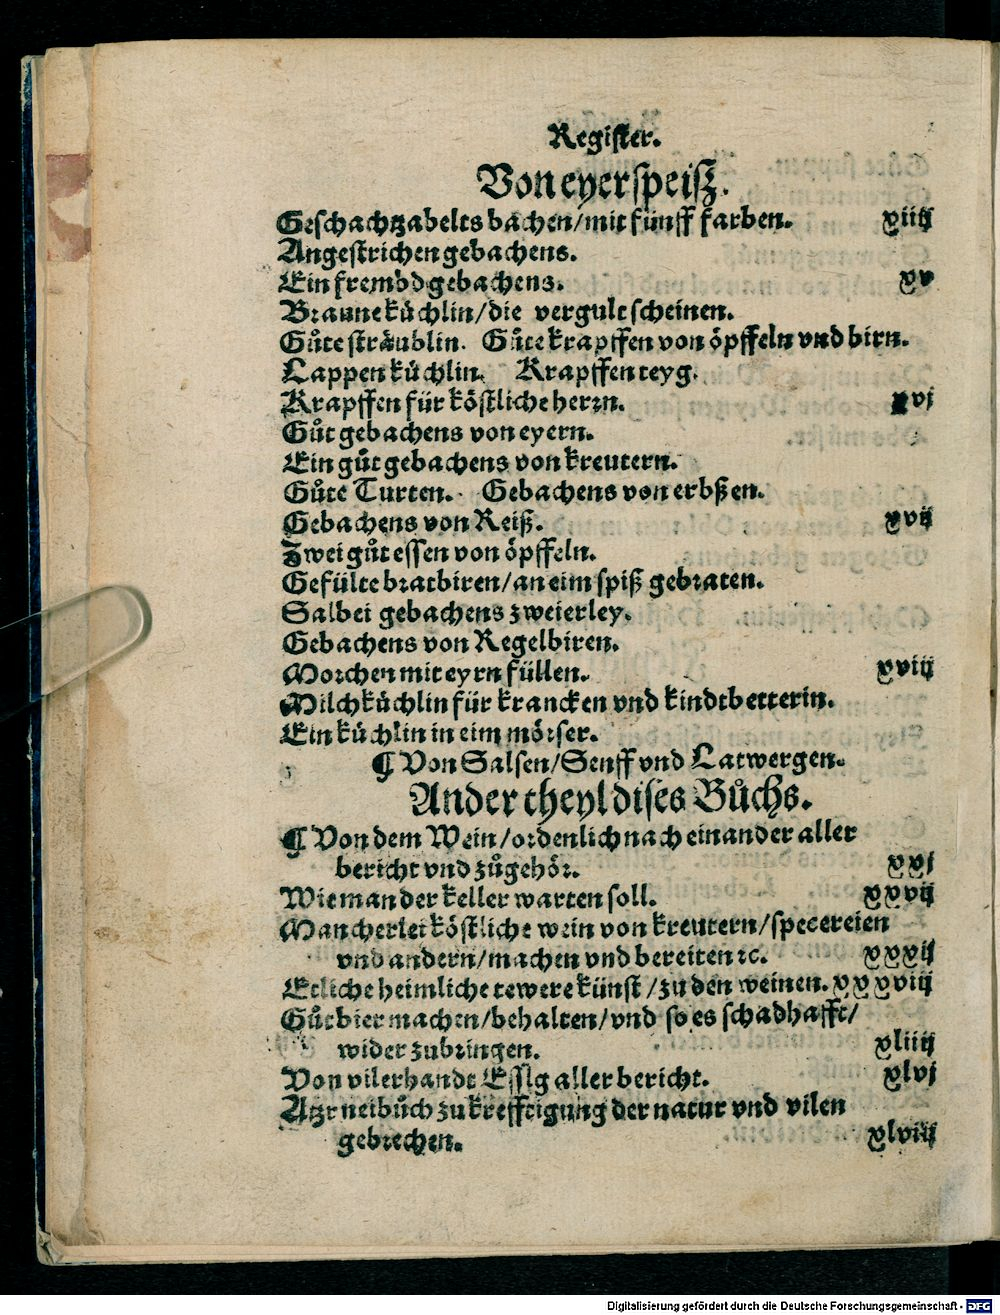 Register.
Von eyerspeiß.
Geschachtzabelts bachen/mit fünff farben. xiiij
Angestrichen gebachens.
Ein frembd gebachens. xv
Braune küchlin/die vergult scheinen.
Gůte sträublin. Gůte krapffen von öpffeln vnd birn.
Lappen küchlin. Krapffen teyg.
Krapffen für köstliche herrn. xvj
Gůt gebachens von eyern.
Ein gůt gebachens von kreutern.
Gůte Turten. Gebachens von erbßen.
Gebachens von Reiß. xvij
Zwei gůt essen von öpffeln.
Gefülte bratbiren/an eim spiß gebraten.
Salbei gebachens zweierley.
Gebachens von Regelbiren.
Morchen mit eyrn füllen. xviij
Milchküchlin für krancken vnd kindtbetterin.
Ein küchlin in eim mörser.
¶ Von Salsen/Senff vnd Latwergen.
Ander theyl dises Bůchs.
¶ Von dem Wein/ordenlich nach einander aller
bericht vnd zůgehör. xxj
Wie man der keller warten soll. xxvij
Mancherlei köstliche wein von kreutern/specereien
vnd andern/machen vnd bereiten ꝛc. xxxij
Etliche heimliche tewere künst/zu den weinen. xxxviij
Gůt bier machen/behalten/vnd so es schadhafft/
wider zubringen. xliiij
Von vilerhandt Essig aller bericht. xlvj
Artzneibůch zu krefftigung der natur vnd vilen
gebrechen. xlviij
Digitalisierung gefördert durch die Deutsche Forschungsgemeinschaft - DFG